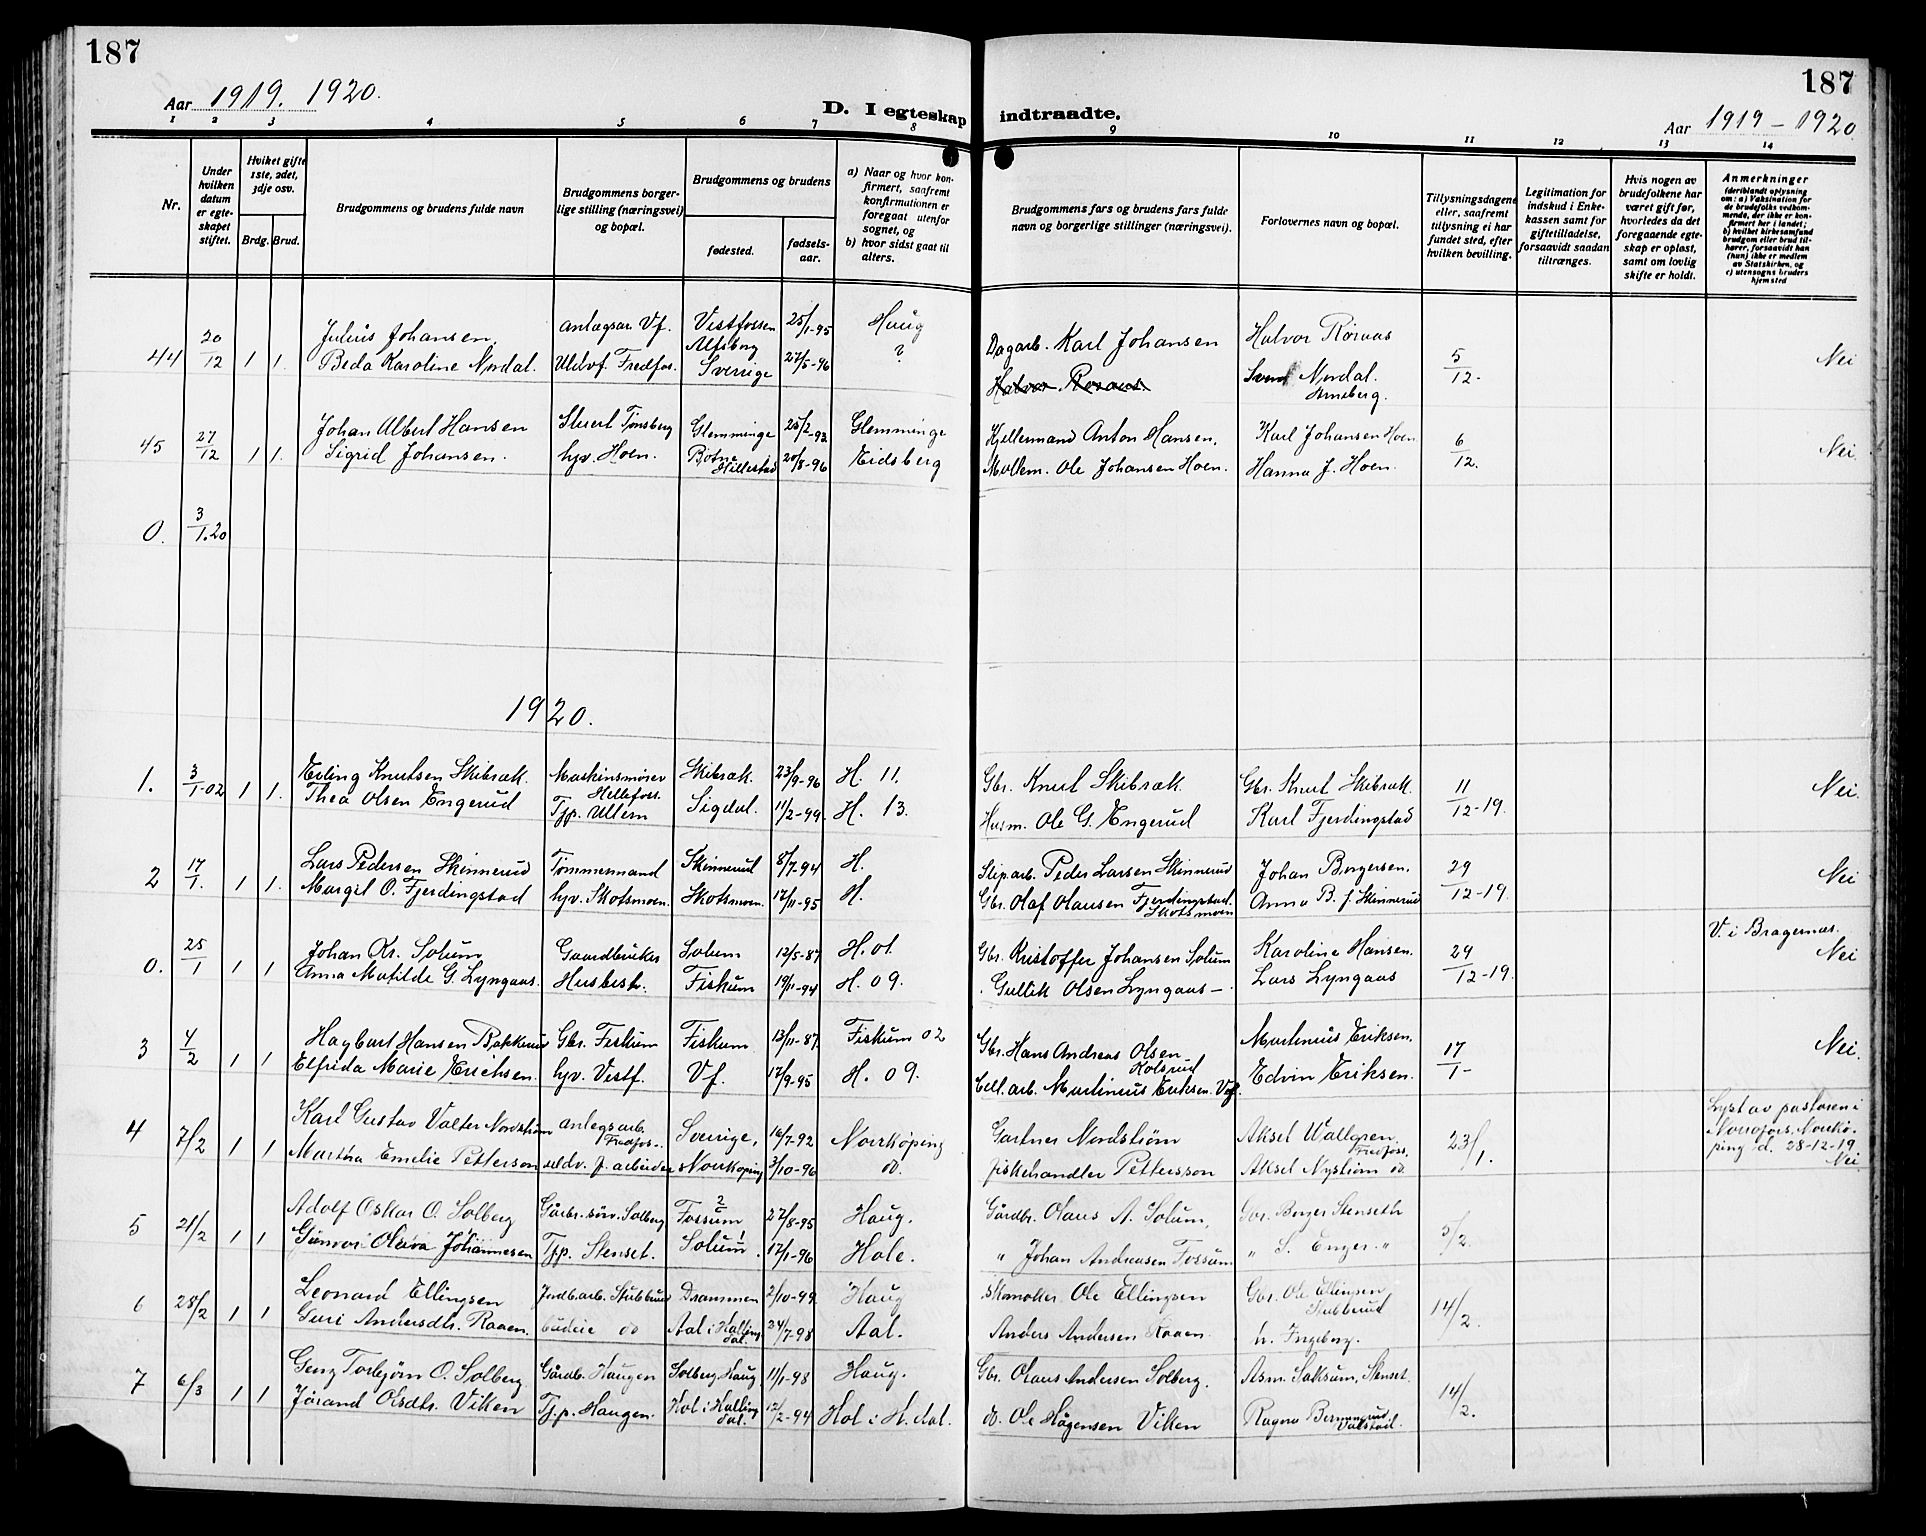 187
187
Aar 1919. 1920.
D. I egteskap indtraadte.
Aar 1919 - 1920
1 2 3 4 5 6 7 8 9 10 11 12 13 14
Nr.
Under hvilken datum er egteskapet stiftet.
Hvilket gifte 1ste, 2det, 3dje osv.
Brdg. Brud.
Brudgommens og brudens fulde navn
Brudgommens borgerlige stilling (næringsvei) og bopæl.
Brudgommens og brudens
fødested.
fødselsaar.
a) Naar og hvor konfirmert, saafremt konfirmationen er foregaat utenfor sognet, og
b) hvor sidst gaat til alters.
Brudgommens fars og brudens fars fulde navn og borgerlige stillinger (næringsvei).
Forlovernes navn og bopæl.
Tillysningsdagene eller, saafremt tillysning ei har fundet sted, efter hvilken bevilling.
Legitimation for indskud i Enkekassen samt for giftetilladelse, forsaavidt saadan tiltrænges.
Hvis nogen av brudefolkene har været gift før, hvorledes da det foregaaende egteskap er opløst, samt om lovlig skifte er holdt.
Anmerkninger
(deriblandt oplysning om: a) Vaksination for de brudefolks vedkommende, der ikke er konfirmert her i landet;
b) hvilket kirkesamfund brudgom eller brud tilhører, forsaavidt han (hun) ikke er medlem av Statskirken, og
c) utensogns bruders hjemsted
44 20/12 1 1. Julius Johansen. anlægsar. Vf. Vestfossen 25/1-95 Haug Dagarb. Karl Johansen Halvor Roraas 5/12. Nei
Beda Karoline Nordal. Uldvf. Fredfos. Alfsborg Sverrige 27/5-96 ? Halvor Roraas Svend Nordal. Arneberg.
45 27/12 1 1. Johan Albert Hansen Stuert Tønsberg Glemminge 25/2-92 Glemminge Kjellermand Anton Hansen. Karl Johansen Hoen 6/12. Nei
Sigrid Johansen. hjv. Hoen. Botne Hillestad 20/8-96 Eidsberg Møllem. Ole Johansen Hoen. Hanna J. Hoen.
0. 3/1.20
1920.
1. 3/1-02 1 1. Erling Knutsen Skibræk. Maskinsmører Hellefoss. Skibræk. 23/9-96 H. 11. Gbr. Knut Skibræk. Gbr. Knut Skibræk. 11/12-19. Nei.
Thea Olsen Engerud Tjp. Ullern Sigdal. 11/2-99. H. 13. Husm. Ole G. Engerud Karl Fjerdingstad
2 17/1. 1 1. Lars Pedersen Skinnerud Tømmermand Skinnerud 8/7-94 H. Sliparb. Peder Larsen Skinnerud Johan Borgersen. 29/12-19. Nei
Margit O. Fjerdingstad hjv. Skotsmoen. Skotsmoen. 17/11-95 H. Gbr. Olaf Olausen Fjerdingstad. Skotsmoen Anna B. J. Skinnerud
0. 25/1 1 1 Johan Kr. Solum Gaardbruker Solum 12/5-87 H. 01. Gbr. Kristoffer Johansen Solum Karoline Hansen. 29/12-19. V. i Bragernæs. Nei
Anna Matilde G. Lyngaas. Husbest. Fiskum 19/11-94 H. 09. Gullik Olsen Lyngaas - Lars Lyngaas
3 4/2 1 1 Hagbart Hansen Bakkerud Gbr. Fiskum Fiskum 13/11-87 Fiskum 02 Gbr. Hans Andreas Olsen Kolsrud Martinius Eriksen. 17/1- Nei.
Elfrida Marie Erichsen. hjv. Vestf. Vf. 17/9-95 H. 09. Cell. arb. Martinius Eriksen. Vf. Edvin Eriksen.
4 7/2 1 1 Karl Gustav Valter Nordstrøm anlegsarb. Fredfos. Sverige, 16/7-92 Norrköping Gartner Nordstrøm Aksel Wallgren Fredfoss. 23/1. Lyst av pastoren i Norrköping d. 28-12-19 Nei
Martha Emelie Petterson uldv. f. arbeider Norrköping 3/10-96 do. fiskehandler Pettersson Aksel Nystrøm do
5 21/2 1 1 Adolf Oskar O. Solberg Gårbr. søn. Solberg Fossum 2 27/8-95 Haug. Gårdbr. Olaus A. Solum, Gbr. Borger Stenseth 5/2.
Gunvor Olava Johannesen Tjp. Stenset. Solum 1 17/1-96 Hole. " Johan Andreasen Fossum " S. Enger. "
6 28/2 1 1 Leonard Ellingsen Jordb. arb. Stubberud Drammen 2/10-99 Haug Skomaker Ole Ellingsen Gbr. Ole Ellingsen Stubberud 14/2.
Guri Andersdtr. Raaen. budeie do Aal i Hallingdal. 24/7-98 Aal. Anders Andersen Raaen. h. Ingeborg.
7 6/3 1 1 Georg Torbjørn O. Solberg Gårdb. Haugen Solberg, Haug 11/1-98 Haug. Gbr. Olaus Andersen Solberg. Asm. Saksum, Stenset. 14/2.
Jørand Olsdtr. Viken Tj.p. Haugen. Hol i Hallingdal. 12/2-94 Hol i H.dal. do. Ole Hågensen Viken Ragna